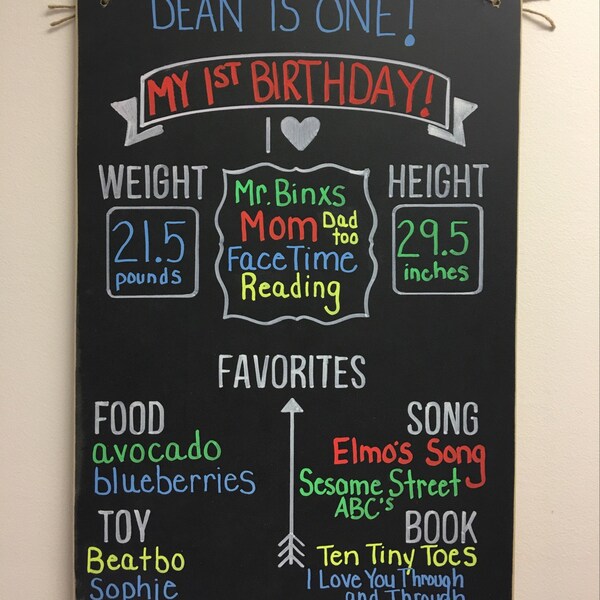 DEAN IS ONE!
MY 1ST BIRTHDAY!
I ♥
WEIGHT
21.5
pounds
Mr. Binxs
Mom Dad too
FaceTime
Reading
HEIGHT
29.5
inches
FAVORITES
FOOD
avocado
blueberries
SONG
Elmo's Song
Sesame Street
ABC's
TOY
Beatbo
Sophie
BOOK
Ten Tiny Toes
I Love You Through
and Through